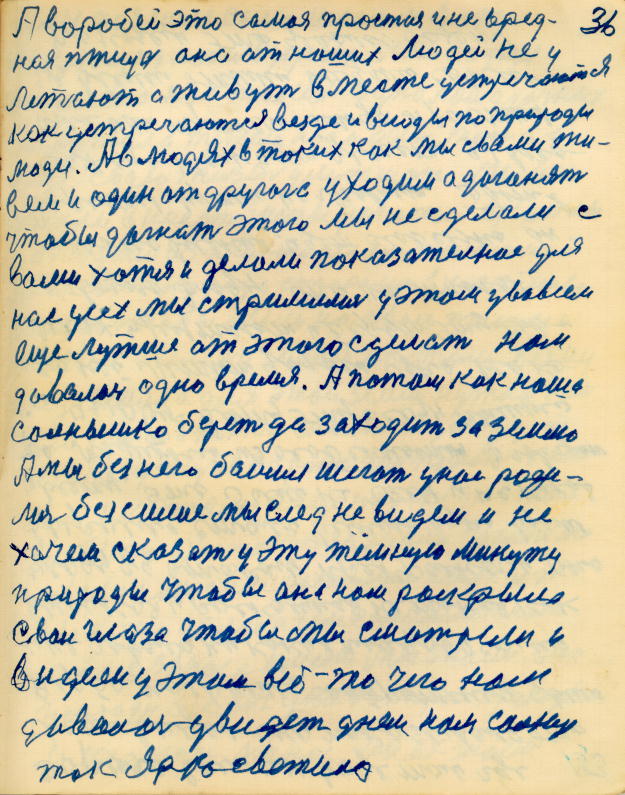 36
А воробей это самая простая и не вред-
ная птица она от наших людей не у
летают а живут вместе устречаются
как устречаются везде и всюды по природы
люди. А в людях в таких как мы с вами жи-
вем и один от другога уходим а даганят
чтобы дагнат этого мы не сделали с
вами хотя и делали показателное для
нас усех мы стримимся у этом у во всем
еще лутше от этого сделат нам
давалас одно время. А потом как наша
солнышко берет да заходит за землю
А мы без него баимся шагат у нас роди-
мя без силие мы след не видем и не
хочем сказат у эту тёмную минуту
природы чтобы она нам раскрыла
сваи глаза чтобы мы смотрели и
видели у этом всё-то чего нам
давалас увидет днем нам солнцу
так ярко светила